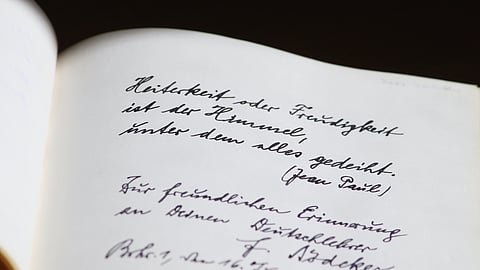 Heiterkeit oder Freudigkeit
ist der Himmel,
unter dem alles gedeiht.
(Jean Paul)
Zur freundlichen Erinnerung
an Deinen Deutschlehrer
F. Bödeker
Bohr. 1, den 16.